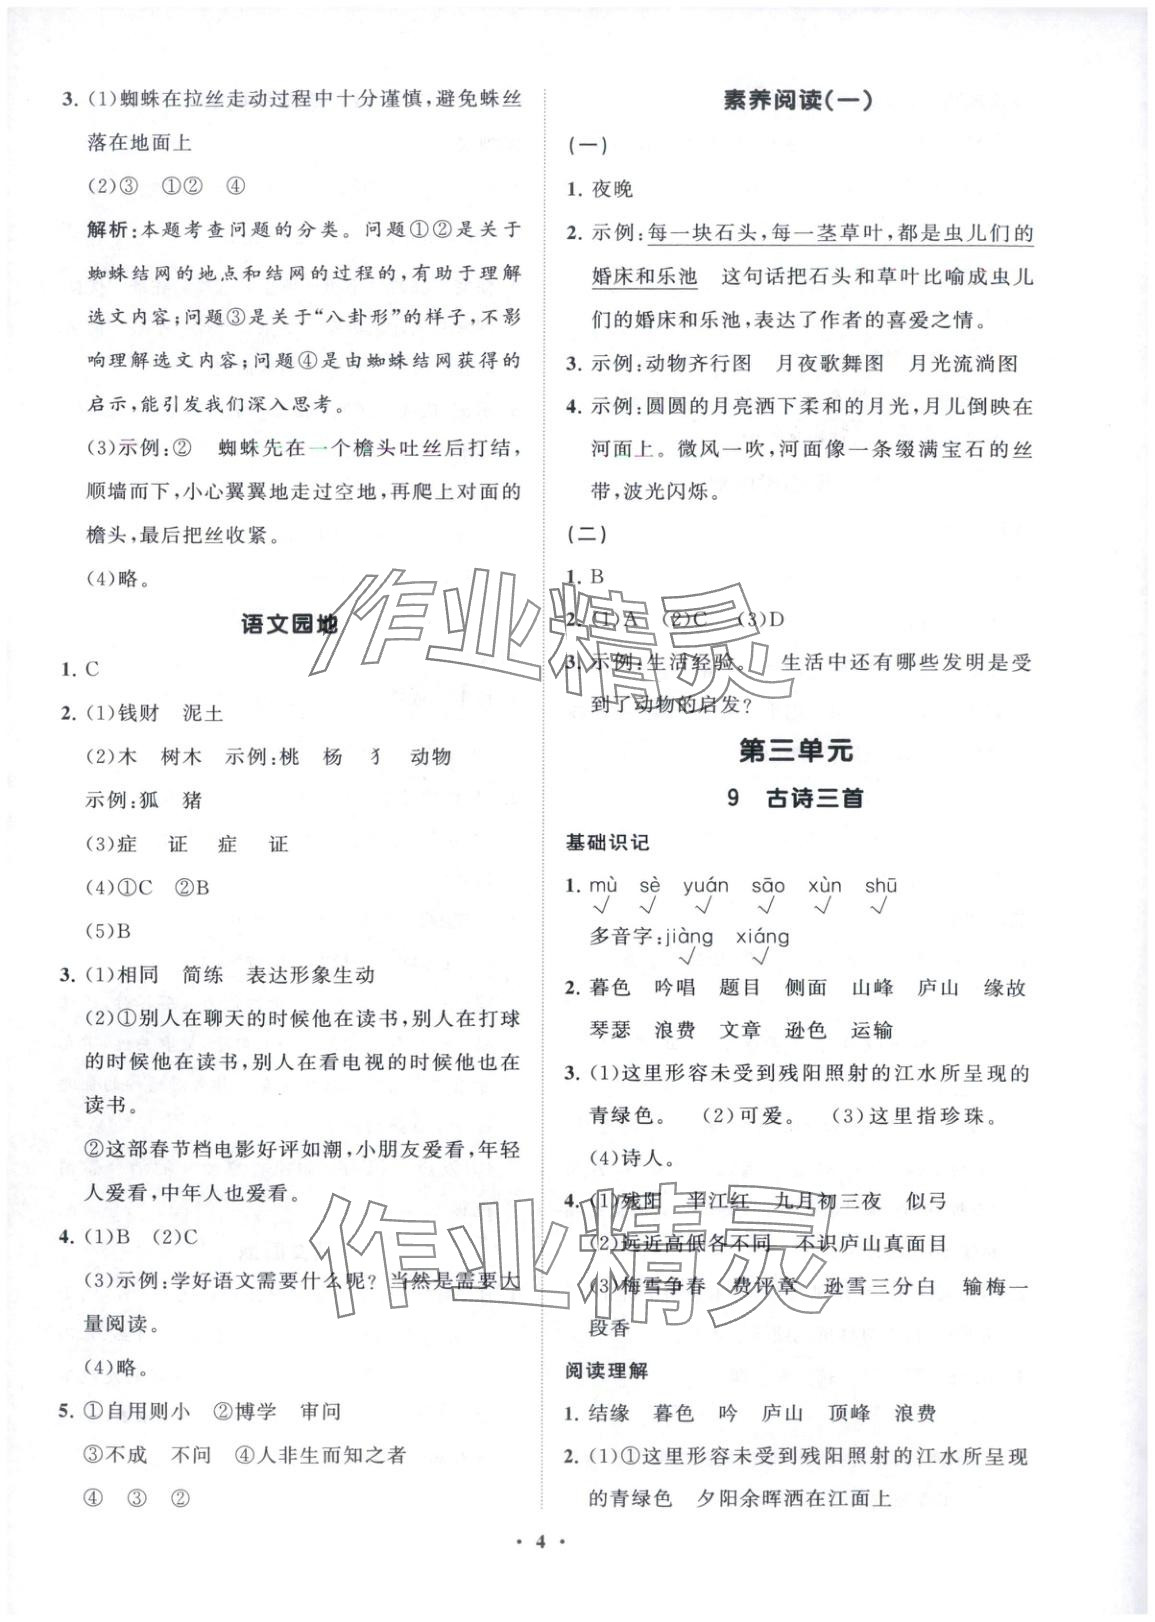 3. (1)蜘蛛在拉丝走动过程中十分谨慎,避免蛛丝
落在地面上
(2)③ ①② ④
解析:本题考查问题的分类。问题①②是关于
蜘蛛结网的地点和结网的过程的,有助于理解
选文内容;问题③是关于“八卦形”的样子,不影
响理解选文内容;问题④是由蜘蛛结网获得的
启示,能引发我们深入思考。
(3)示例:② 蜘蛛先在一个檐头吐丝后打结,
顺墙而下,小心翼翼地走过空地,再爬上对面的
檐头,最后把丝收紧。
(4)略。
语文园地
1. C
2. (1)钱财 泥土
(2)木 树木 示例:桃 杨 犭 动物
示例:狐 猪
(3)症 证 症 证
(4)①C ②B
(5)B
3. (1)相同 简练 表达形象生动
(2)①别人在聊天的时候他在读书,别人在打球
的时候他在读书,别人在看电视的时候他也在
读书。
②这部春节档电影好评如潮,小朋友爱看,年轻
人爱看,中年人也爱看。
4. (1)B (2)C
(3)示例:学好语文需要什么呢?当然是需要大
量阅读。
(4)略。
5. ①自用则小 ②博学 审问
③不成 不问 ④人非生而知之者
④ ③ ②
素养阅读(一)
(一)
1. 夜晚
2. 示例:每一块石头,每一茎草叶,都是虫儿们的
婚床和乐池 这句话把石头和草叶比喻成虫儿
们的婚床和乐池,表达了作者的喜爱之情。
3. 示例:动物齐行图 月夜歌舞图 月光流淌图
4. 示例:圆圆的月亮洒下柔和的月光,月儿倒映在
河面上。微风一吹,河面像一条缀满宝石的丝
带,波光闪烁。
(二)
1. B
2. (1)A (2)C (3)D
3. 示例:生活经验。 生活中还有哪些发明是受
到了动物的启发?
第三单元
9 古诗三首
基础识记
1. mù sè yuán sāo xùn shū
√ √ √ √ √ √
多音字:jiàng xiáng
√ √
2. 暮色 吟唱 题目 侧面 山峰 庐山 缘故
琴瑟 浪费 文章 逊色 运输
3. (1)这里形容未受到残阳照射的江水所呈现的
青绿色。 (2)可爱。 (3)这里指珍珠。
(4)诗人。
4. (1)残阳 半江红 九月初三夜 似弓
(2)远近高低各不同 不识庐山真面目
(3)梅雪争春 费评章 逊雪三分白 输梅一
段香
阅读理解
1. 结缘 暮色 吟 庐山 顶峰 浪费
2. (1)①这里形容未受到残阳照射的江水所呈现
的青绿色 夕阳余晖洒在江面上
• 4 •
作业精灵
作业精灵